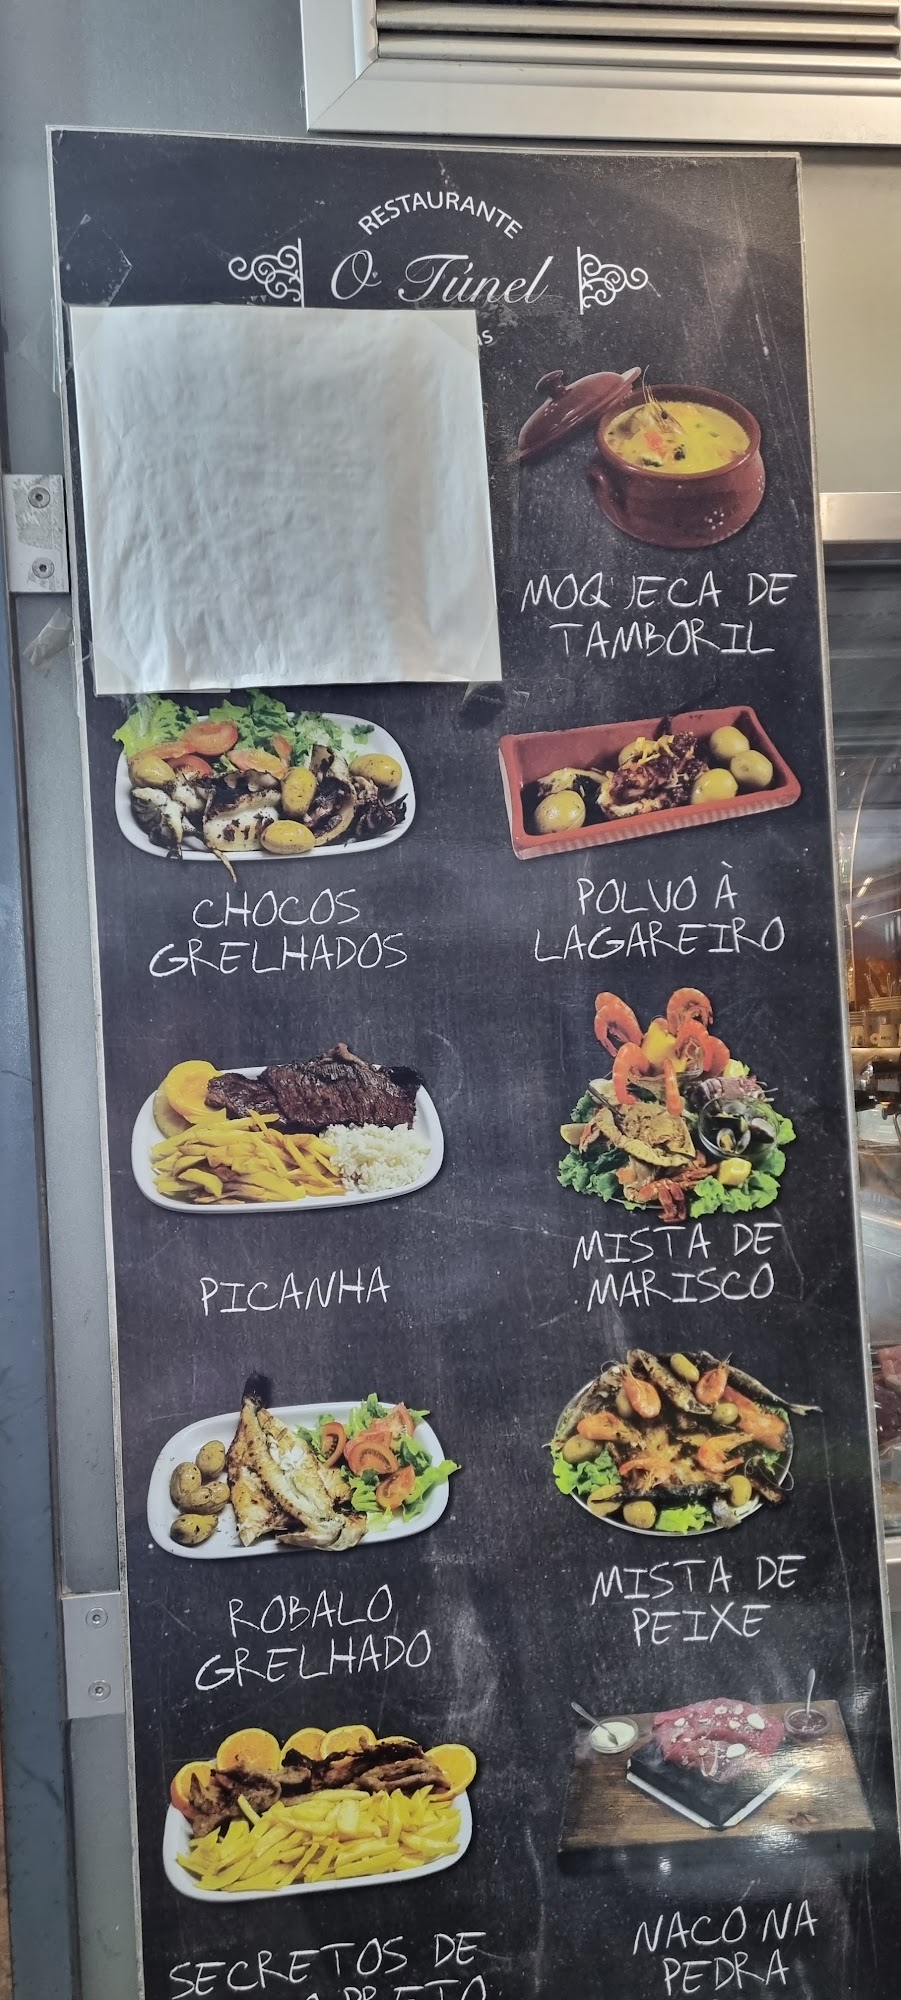 RESTAURANTE
O Túnel
MOQUECA DE
TAMBORIL
CHOCOS
GRELHADOS
POLVO À
LAGAREIRO
PICANHA
MISTA DE
MARISCO
ROBALO
GRELHADO
MISTA DE
PEIXE
SECRETOS DE
PRETO
NACO NA
PEDRA